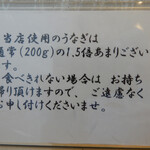 当店使用のうなぎは
通常(200g)の1.5倍あまりござい
す。
食べきれない場合は お持ち
帰り頂けますので、ご遠慮なく
お申し付けくださいませ。